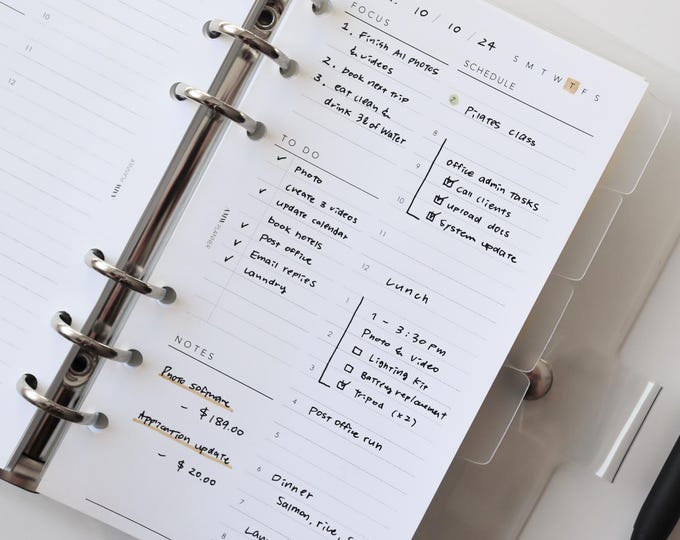 10 / 10 / 24
S M T W T F S
FOCUS
1. Finish All photos
& videos
2. book next trip
3. eat clean &
drink 3l of water
TO DO
✓ photo
create 3 videos
✓ update calendar
book hotels
✓ Post office
✓ Email replies
✓ laundry
NOTES
Photo software
- $189.00
Application update
- $20.00
SCHEDULE
7 Pilates class
8
9 Office admin tasks
☑ Call clients
10 ☑ upload docs
☑ System update
11
12 Lunch
1
1 - 3:30pm
2 Photo & video
☐ Lighting kit
3 ☐ Battery replacement
☑ Tripod (x2)
4 Post office run
5
6 Dinner
7 Salmon, rice,
8
10
12
PLANNER
PLANNER